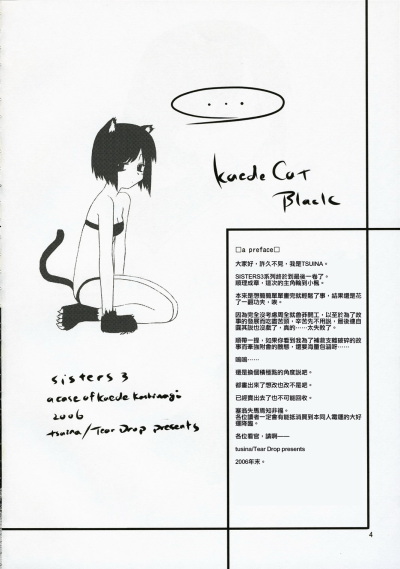 ...
Kaede Cat
Black
□a preface□
大家好，許久不見，我是TSUINA。
SISTERS3系列終於到最後一卷了。
順理成章，這次的主角輪到小楓。
本來是想簡簡單單畫完就輕鬆了事，結果還是花
了一翻功夫，唉。
因為完全沒考慮周全就魯莽開工，以至於為了故
事的發展而吃盡苦頭，辛苦先不用說，最後連自
圓其說也沒戲了，真的……太失敗了。
順帶一提，如果你看到我為了補救支離破碎的故
事而牽強附會的醜態，還要海量包涵呀……
嗚嗚……
還是換個積極點的角度說吧。
都畫出來了想改也改不是吧。
已經賣出去了也不可能回收。
塞翁失馬焉知非福。
各位讀者一定會有能抵消買到本同人霉運的大好
運降臨。
各位看官，請啊——
tusina/Tear Drop presents
2006年末。
sisters 3
a case of Kaede
2006
tsuina/Tear Drop presents
4